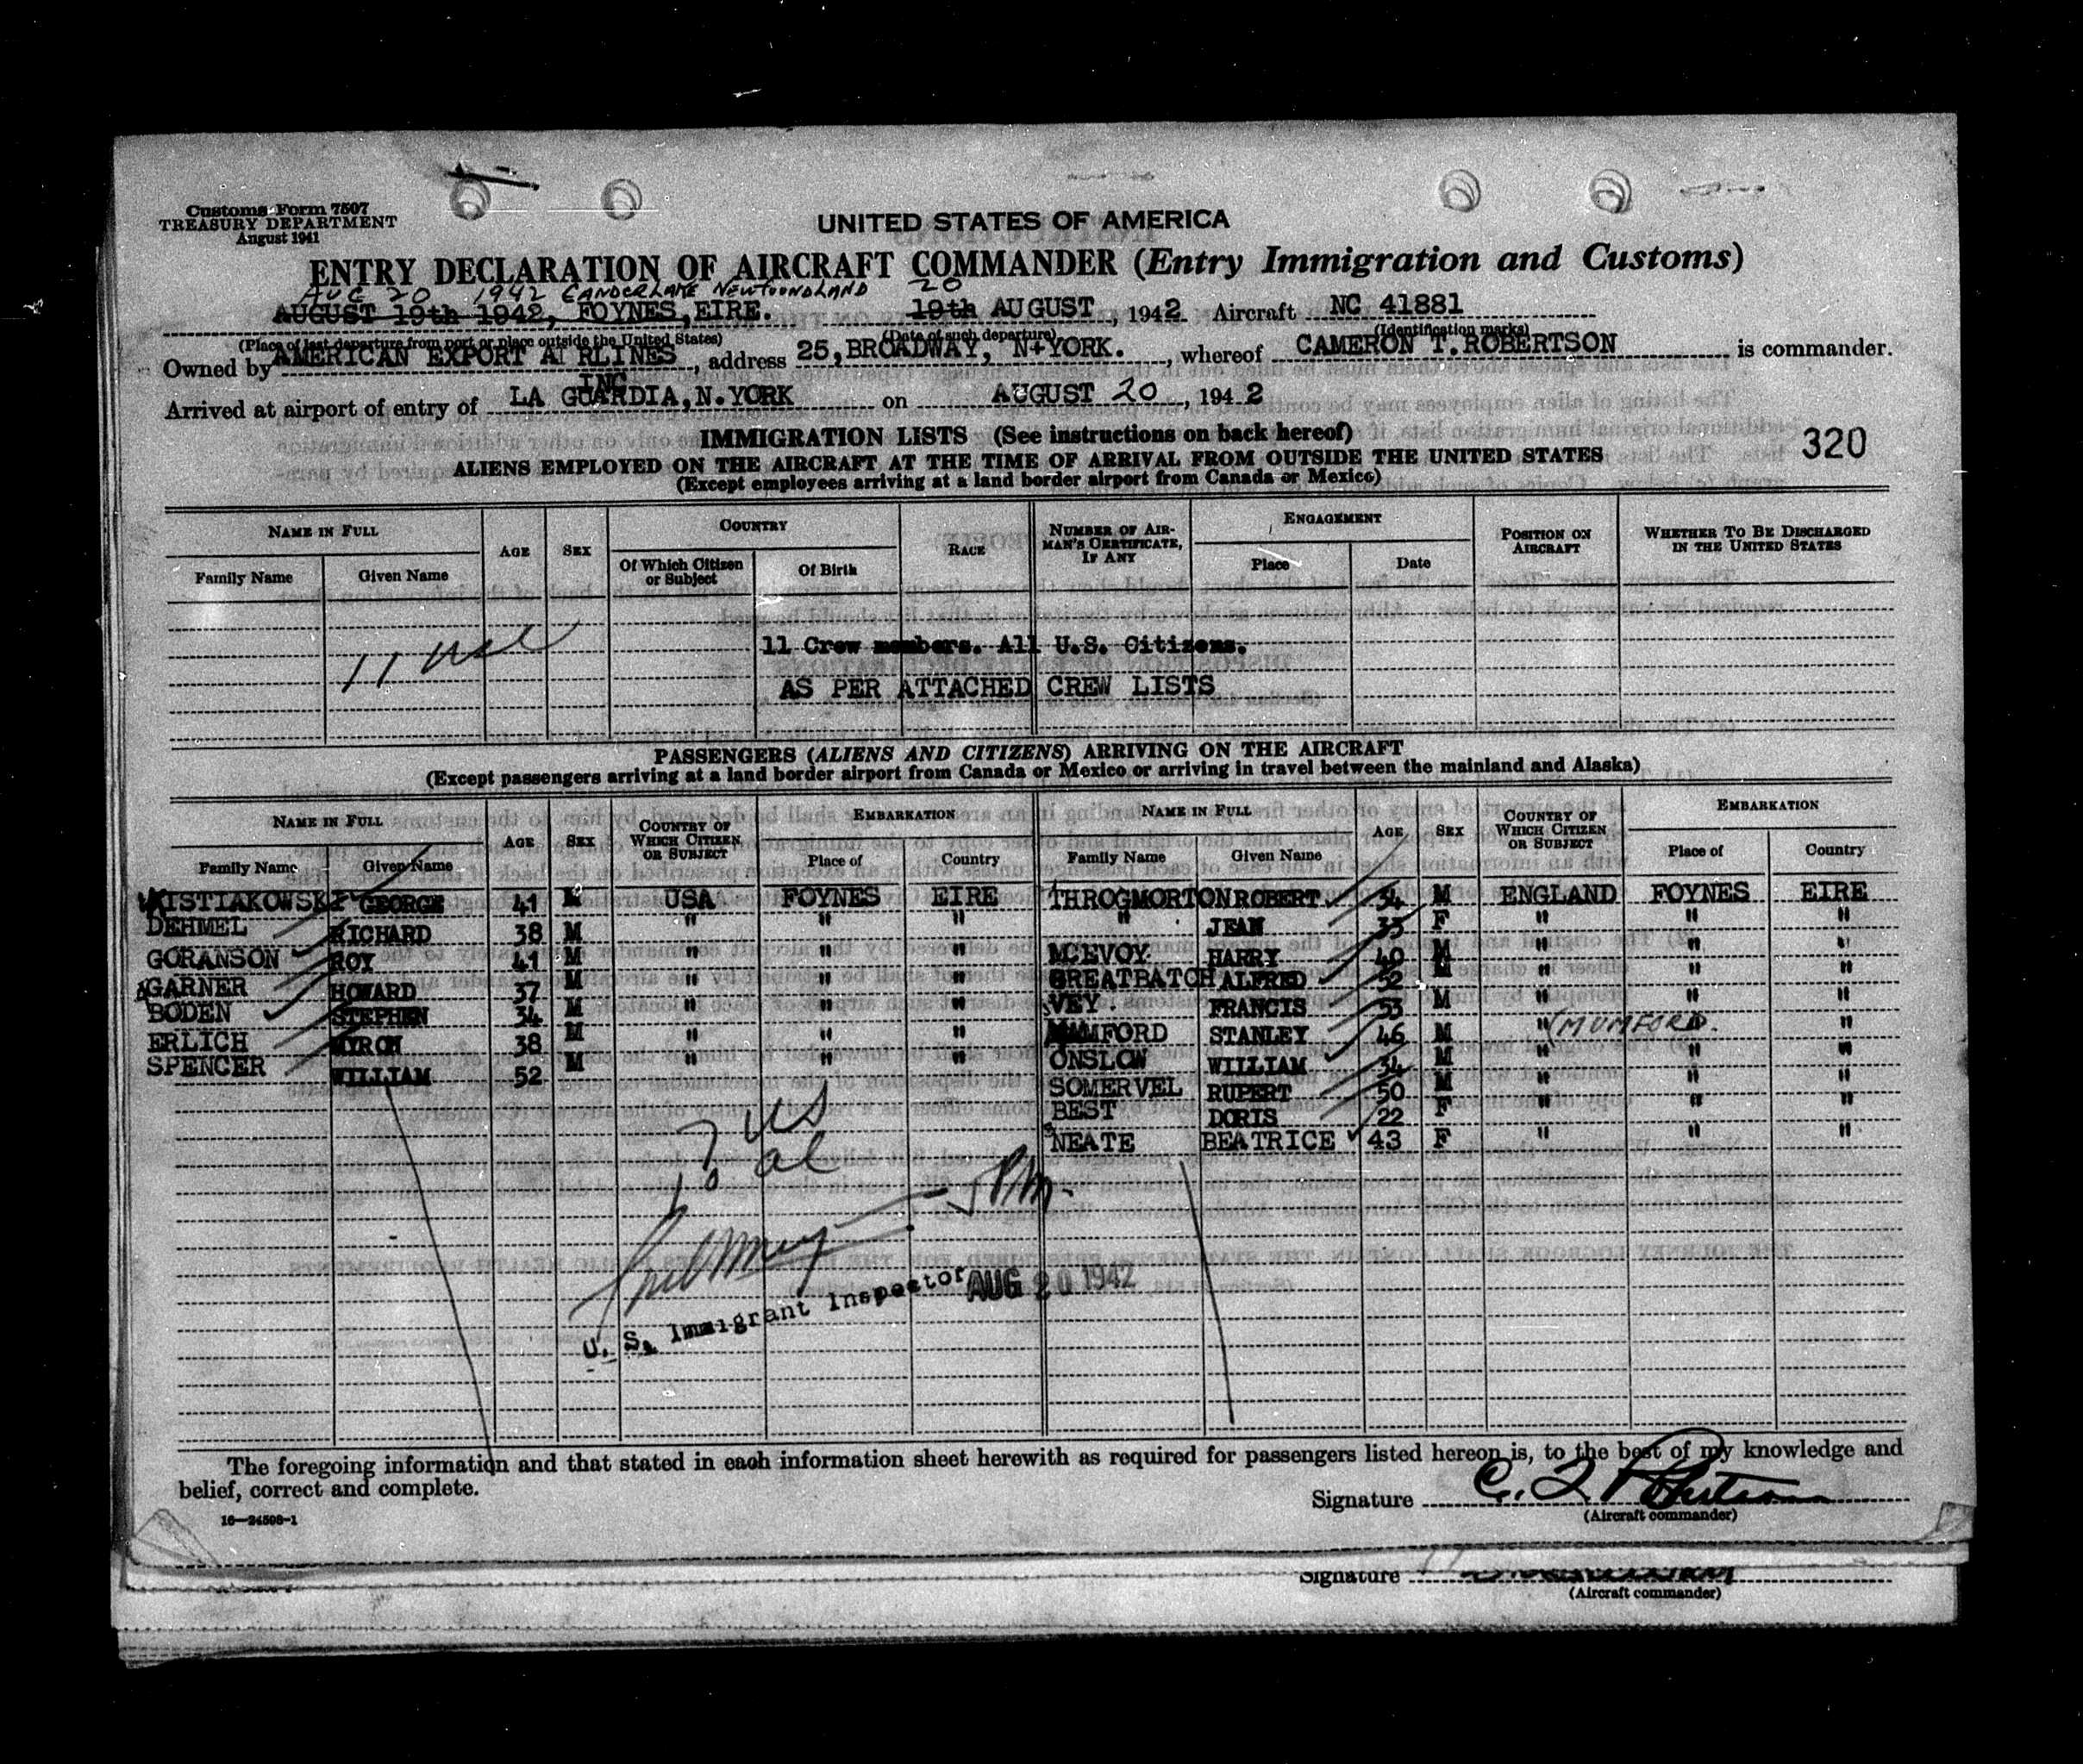 Customs Form 7507
TREASURY DEPARTMENT
August 1941
UNITED STATES OF AMERICA
ENTRY DECLARATION OF AIRCRAFT COMMANDER (Entry Immigration and Customs)
AUG 20 1942 GANDER LAKE NEWFOUNDLAND 20
AUGUST 19th 1942, FOYNES, EIRE. 19th AUGUST, 1942 Aircraft NC 41881
(Place of last departure from port or place outside the United States) (Date of such departure) (Identification marks)
Owned by AMERICAN EXPORT AIRLINES INC, address 25, BROADWAY, N+YORK., whereof CAMERON T. ROBERTSON is commander.
Arrived at airport of entry of LA GUARDIA, N. YORK on AUGUST 20, 1942
IMMIGRATION LISTS (See instructions on back hereof)
320
ALIENS EMPLOYED ON THE AIRCRAFT AT THE TIME OF ARRIVAL FROM OUTSIDE THE UNITED STATES
(Except employees arriving at a land border airport from Canada or Mexico)
NAME IN FULL AGE SEX COUNTRY RACE NUMBER OF AIRMAN'S CERTIFICATE, IF ANY ENGAGEMENT POSITION ON AIRCRAFT WHETHER TO BE DISCHARGED IN THE UNITED STATES
Family Name Given Name Of Which Citizen or Subject Of Birth Place Date
11 Crew members. All U.S. Citizens.
11 usc
AS PER ATTACHED CREW LISTS
PASSENGERS (ALIENS AND CITIZENS) ARRIVING ON THE AIRCRAFT
(Except passengers arriving at a land border airport from Canada or Mexico or arriving in travel between the mainland and Alaska)
NAME IN FULL AGE SEX COUNTRY OF WHICH CITIZEN OR SUBJECT EMBARKATION NAME IN FULL AGE SEX COUNTRY OF WHICH CITIZEN OR SUBJECT EMBARKATION
Family Name Given Name Place of Country Family Name Given Name Place of Country
KISTIAKOWSKY GEORGE 41 M USA FOYNES EIRE THROGMORTON ROBERT 34 M ENGLAND FOYNES EIRE
DEHMEL RICHARD 38 M " " " " JEAN 33 F " " "
GORANSON ROY 41 M " " " MCEVOY HARRY 40 M " " "
GARNER HOWARD 37 M " " " GREATBATCH ALFRED 52 M " " "
BODEN STEPHEN 34 M " " " VEY FRANCIS 53 M " " "
ERLICH MYRON 38 M " " " MAMFORD STANLEY 46 M " (MUMFORD) " "
SPENCER WILLIAM 52 M " " " ONSLOW WILLIAM 34 M " " "
SOMERVEL RUPERT 50 M " " "
BEST DORIS 22 F " " "
NEATE BEATRICE 43 F " " "
7 US
10 al
U. S. Immigrant Inspector AUG 20 1942
The foregoing information and that stated in each information sheet herewith as required for passengers listed hereon is, to the best of my knowledge and
belief, correct and complete.
Signature C. T. Robertson
(Aircraft commander)
16—24508-1
Signature
(Aircraft commander)